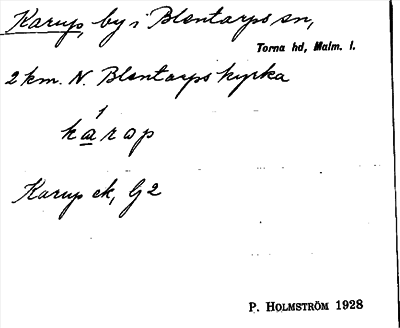 Karup, by i Blentarps sn,
Torna hd, Malm. l.
2 km. N. Blentarps kyrka
1
karap
Karup ek, G2
P. HOLMSTRÖM 1928